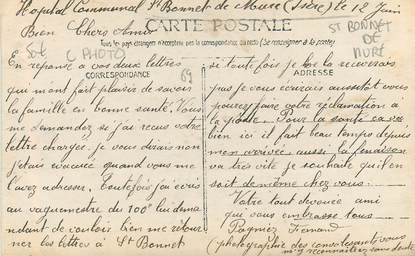 Hopital Communal St Bonnet de Mure (Isère) le 12 Juin
Bien Chers Amis
CARTE POSTALE
Tous les pays étrangers n'acceptent pas la correspondance au recto (Se renseigner à la poste)
ST BONNET
DE
MURE
PHOTO
69
CORRESPONDANCE
En réponse a vos deux lettres
qui mont fait plaisir de savoir
la famille en bonne santé. Vous
me demandez si j'ai recus votre
lettre chargée. Je vous dirais non
j'etais évacuée quand vous me
l'avez adresser. Toutefois j'ai écris
au vaguemestre du 100e lui dema
ndant de vouloir bien me retour
ner les lettres à St Bonnet
ADRESSE
si toutefois je les recevrais
pas je vous écrirais aussitot vous
pourez faire votre réclamation a
la poste. Pour la santé ca va
bien ici il fait beau temps depuis
mon arrivée aussi la fenaison
va tres vite je souhaite qu'il en
soit de même chez vous.
Votre tout dévouée ami
qui vous embrasse tous
Pagniez Fernand
(photographie des convalescents vous
m'y reconnaitrez sans doute